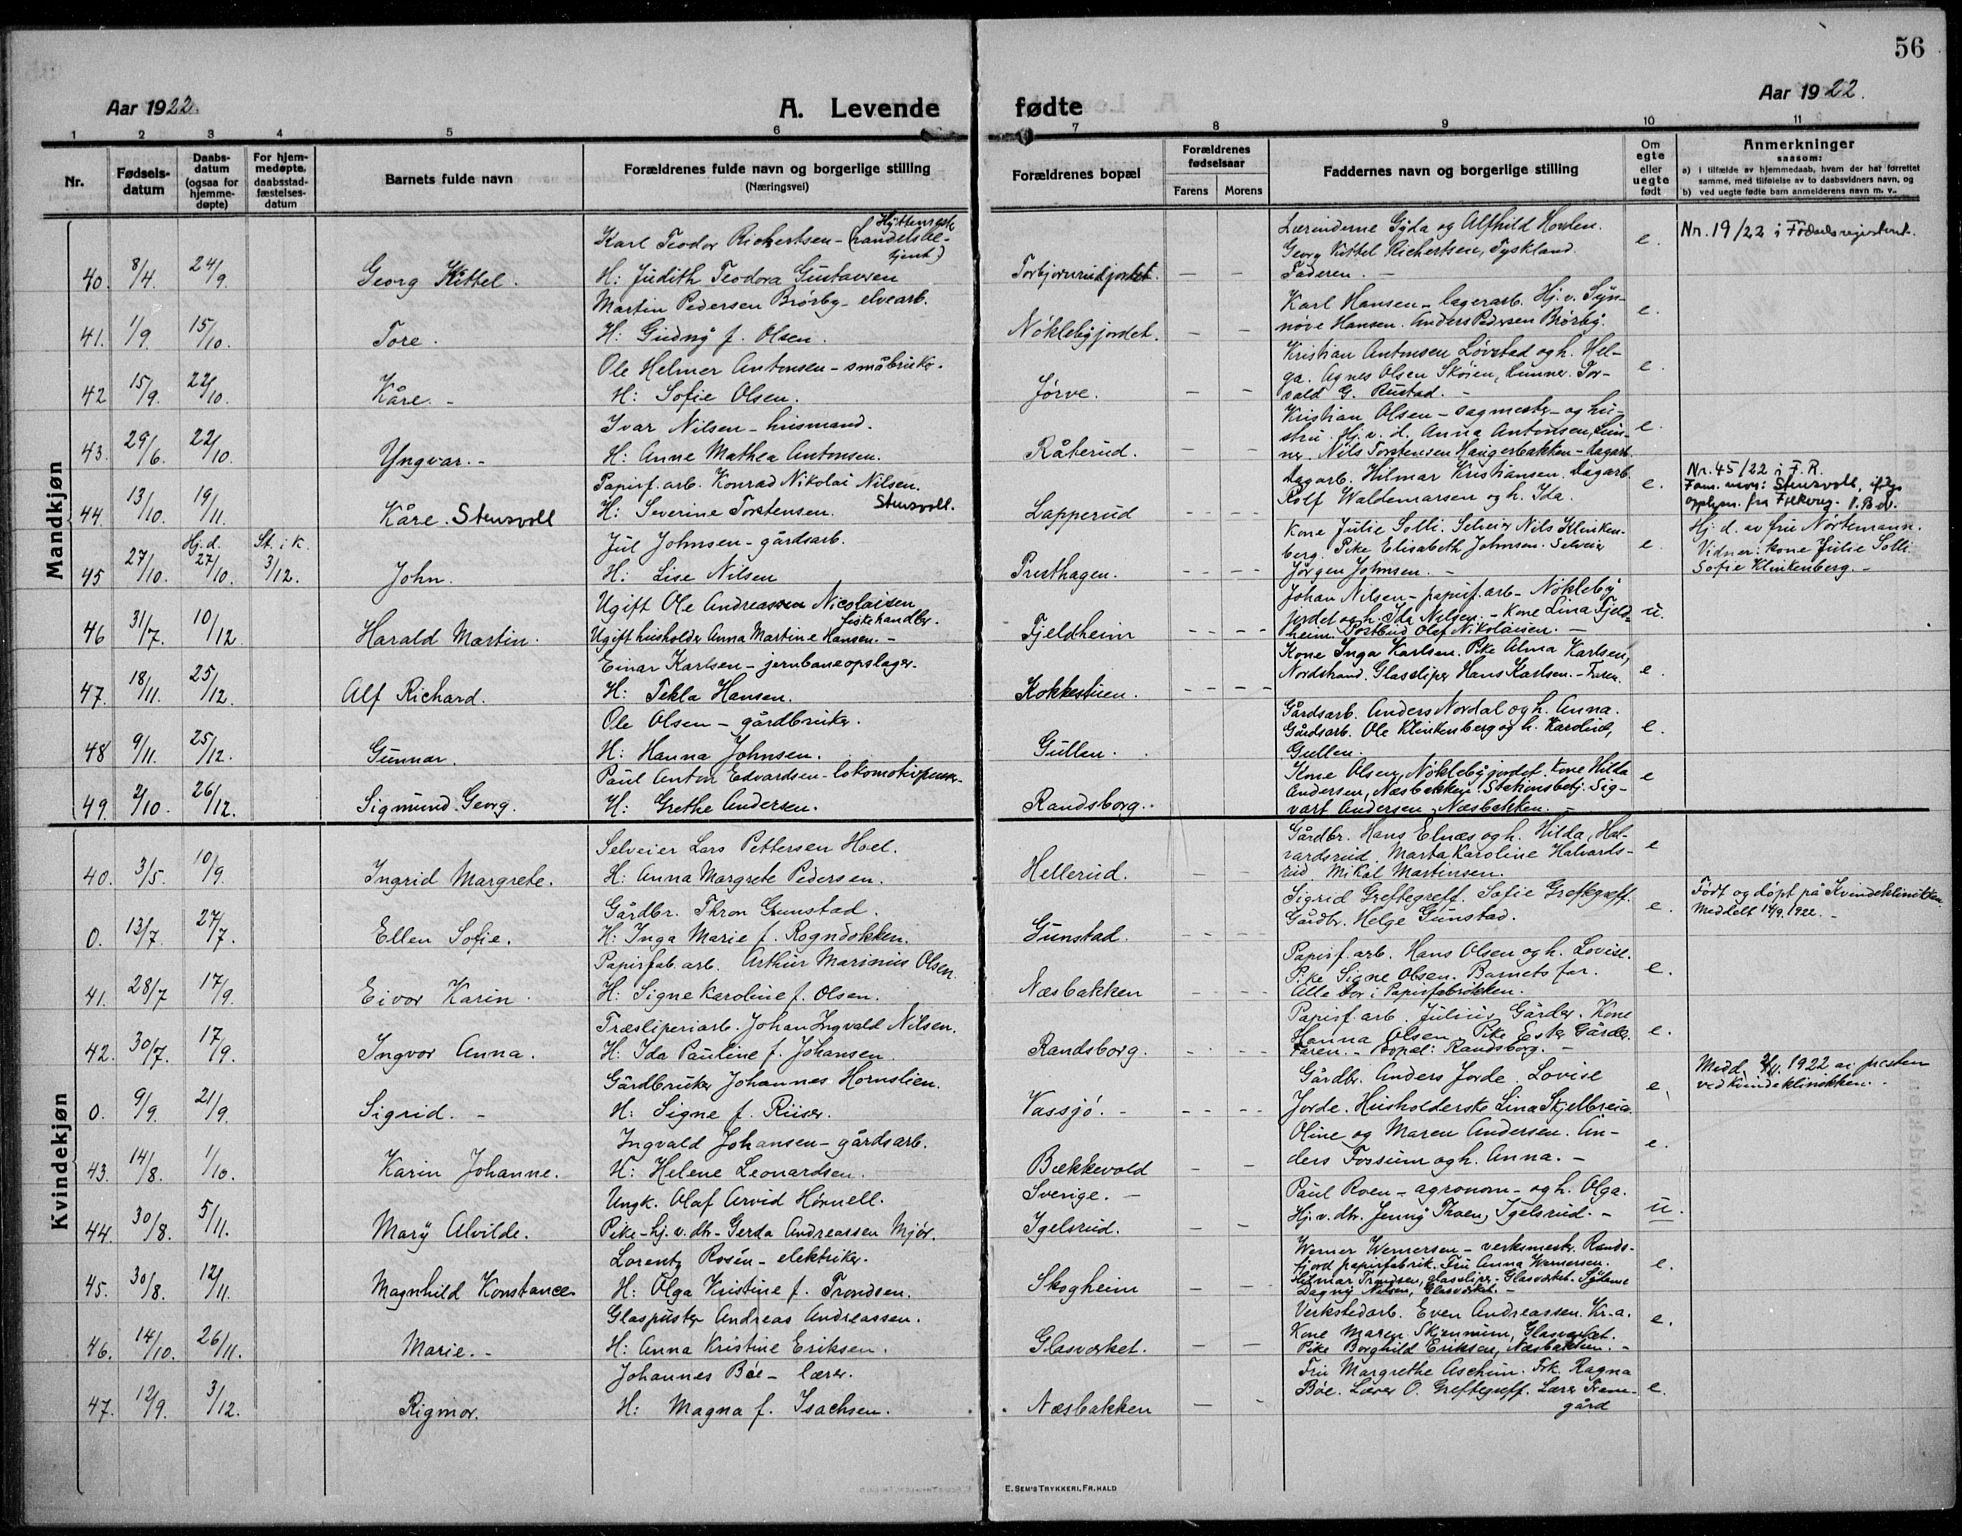 56
Aar 1922.
A. Levende fødte
Aar 1922.
1 2 3 4 5 6 7 8 9 10 11
Nr.
Fødsels-
datum
Daabs-
datum
(ogsaa for
hjemme-
døpte)
For hjem-
medøpte,
daabsstad-
fæstelses-
datum
Barnets fulde navn
Forældrenes fulde navn og borgerlige stilling
(Næringsvei)
Forældrenes bopæl
Forældrenes
fødselsaar
Farens Morens
Faddernes navn og borgerlige stilling
Om
egte
eller
uegte
født
Anmerkninger
saasom:
a) i tilfælde av hjemmedaab, hvem der har forrettet
samme, med tilføielse av to daabsvidners navn, og
b) ved uegte fødte barn anmelderens navn m. v.
Mandkjøn
Karl Teodor Richertsen - (handelsbe-
tjent)
40. 8/4. 24/9. Georg Kittel. H: Judith Teodora Gustavsen Torbjørnrudjordet. — —
Lærerinderne Gyda og Alfhild Horden.
Georg Kittel Richertsen, Tyskland.
Faderen. - e. Nr. 19/22 i Fødselsregisteret.
Martin Pedersen Brørby - elvearb.
41. 1/9. 15/10. Tore. H: Gudny f. Olsen. Nøklebyjordet. - -
Karl Hansen - lagerarb. Hj. v. Syn-
nøve Hansen. Anders Pedersen Brørby. e.
Ole Helmer Antonsen - småbruker.
42 15/9. 22/10. Kåre. - H: Sofie Olsen. Jørve. - -
Kristian Antonsen Løvstad og h. Hel-
ga. Agnes Olsen Skøien, Lunner. Tor-
vald G. Rustad. - e.
Ivar Nilsen - husmand.
43. 29/6. 22/10. Yngvar. - H: Anne Mathea Antonsen. Råterud. - -
Kristian Olsen - sagmester - og hu-
stru. Hj. v. d. Anna Antonsen, Lun-
ner. Nils Torstensen Haugerbakken - dagarb. e.
Papirf. arb. Konrad Nikolai Nilsen.
44. 13/10. 19/11. Kåre Stensvoll H: Severine Torstensen. Stensvoll. Lapperud - -
Dagarb. Hilmar Kristiansen. Dagarb.
Rolf Waldemarsen og h. Ida. e.
Nr. 45/22 i F. R.
Fam. navn: Stensvoll, iflg.
opplysn. fra
Hj. d. St. i k. Jul Johnsen - gårdsarb.
45 27/10. 27/10. 3/12. John. H: Lise Nilsen Presthagen. - -
Kone Julie Solli. Selveier Nils Klinken-
berg. Pike Elisabeth Johnsen. Selveier
Jørgen Johnsen. - e
Hj. d. av fru Nørtemann.
Vidner: kone Julie Solli
Sofie Klinkenberg. -
Ugift Ole Andreassen Nicolaisen
46 31/7. 10/12. Harald Martin. Ugift husholder Anna Martine Hansen. - Fjeldheim - -
Johan Nilsen - papirf. arb - Nøkleby
jordet og h. Ida Nilsen. - Kone Lina Fjeld-
heim. Postbud Olaf Nikolaisen. - u.
Einar Karlsen - jernbaneopslager.
47. 18/11. 25/12. Alf Richard. H: Tekla Hansen. Kokkestuen. - -
Kone Inga Karlsen. Pike Alma Karlsen,
Nordstrand. Glassliper Hans Karlsen. - Faren. e.
Ole Olsen - gårdbruker.
48 9/11. 25/12. Gunnar. H: Hanna Johnsen. Gullen. - -
Gårdsarb. Anders Nordal og h. Anna.
Gårdsarb. Ole Klinkenberg og h. Karoline,
Gullen. e.
Paul Anton Edvardsen - lokomotivpuss-
49. 2/10. 26/12. Sigmund Georg. H: Grethe Andersen. Randsborg. - -
Kone Olsen, Nøklebyjordet. Kone Hilda
Andersen, Næsbakken. Stationsbetj. Sig-
vart Andersen, Næsbakken. - e
Kvindekjøn
Selveier Lars Pettersen Hoel.
40. 3/5. 10/9. Ingrid Margrete. H: Anna Margrete Pedersen. Hellerud. - -
Gårdbr. Hans Elnæs og h. Hilda, Hal-
vardsrud. Marta Karoline Halvards-
rud Mikal Martinsen. e
Gårdbr. Thron Gunstad.
0. 13/7. 27/7. Ellen Sofie. H: Inga Marie f. Rogndokken. Gunstad. - -
Sigrid Greftegreff. Sofie Greftegreff.
Gårdbr. Helge Gunstad. e.
Født og døpt på Kvindeklinikken.
Meddelt 14/9. 1922. -
Papirfab. arb. Arthur Marinius Olsen.
41. 28/7 17/9. Eivor Karin. H: Signe Karoline f. Olsen. Næsbakken - -
Papirf. arb. Hans Olsen og h. Lovise.
Pike Signe Olsen. Barnets far.
Alle bor i Papirfabrikken. e.
Træsliperiarb. Johan Ingvald Nilsen.
42. 30/7. 17/9. Ingvor Anna. H: Ida Pauline f. Johansen. Randsborg. - -
Papirf. arb. Julius Gårder. Kone
Hanna Olsen. Pike Ester Gårder.
Faren. - Bopæl: Randsborg. - e.
Gårdbruker Johannes Hornslien.
0. 9/9. 21/9. Sigrid. - H: Signe f. Riiser. Vassjø. - - -
Gårdbr. Anders Jorde. Lovise
Jorde. Husholderske Lina Skjelbreia. e.
Medd. 2/11. 1922 av presten
ved kvindeklinikken. -
Ingvald Johansen - gårdsarb.
43. 14/8. 1/10. Karin Johanne. H: Helene Leonardsen. Bækkevold - -
Oline og Maren Andersen. An-
ders Fossum og h. Anna. - e.
Ungk. Olaf Arvid Hørnell. Sverige. -
44. 30/8. 5/11. Mary Alvilde. Pike - hj. v. dtr - Gerda Andreassen Mjør. Igelsrud. - -
Paul Roen - agronom - og h. Olga.
Hj. v. dtr. Jenny Thoen, Igelsrud. - u.
Lorentz Rosén - elektriker.
45. 30/8. 12/11. Magnhild Konstance. H: Olga Kristine f. Trondsen. Skogheim - -
Werner Wernersen - verksmestr. Rands-
fjord papirfabrik. Fru Anna Wernersen.
Hilmar Trondsen, glassliper - Glasværket.
Dagny Nilsen, Glasværket. - e.
Glaspuster Andreas Andreassen.
46. 14/10. 26/11. Marie. - H: Anna Kristine Eriksen. Glasværket. - -
Verkstedarb. Even Andreassen. Kr.a.
Kone Maren Skjerunum, Glasværket.
Pike Borghild Eriksen, Næsbakken. - e.
Johannes Bøe - lærer.
47. 12/9. 3/12. Rigmor. H: Magna f. Isachsen. Næsbakken - -
Fru Margrethe Aschim. Frk. Ragna
Bøe. Lærer O. Greftegreff. Lærer Fram-
gård e.
E. SEM'S TRYKKERI, FR.HALD